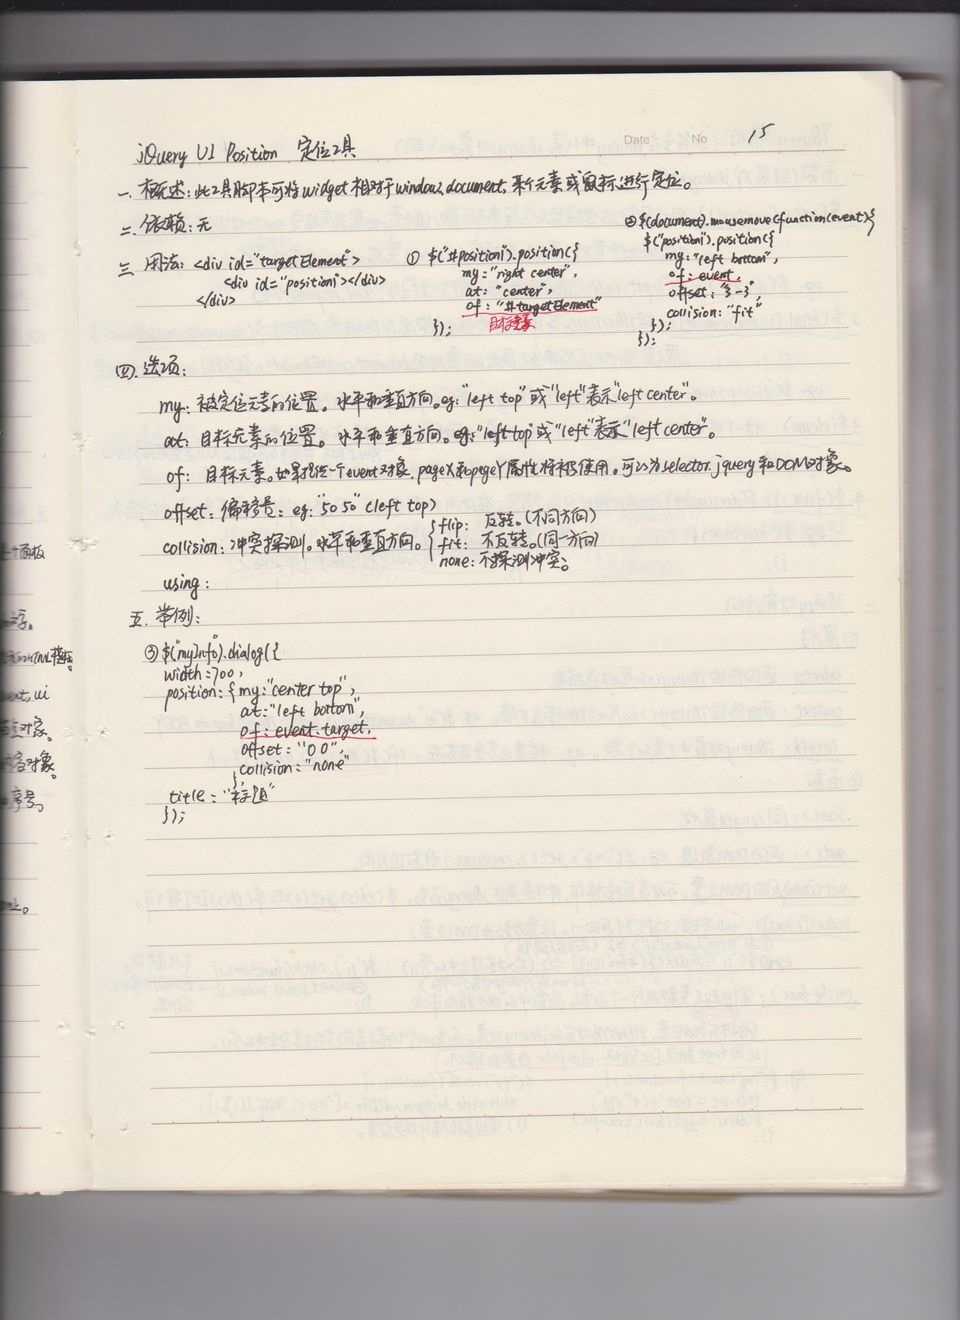 Date No 15
jQuery UI Position 定位工具
一. 概述: 此工具脚本可将widget相对于window, document, 某个元素或鼠标进行定位。
二. 依赖: 无
三. 用法: <div id="targetElement">
<div id="position1"></div>
</div>
① $("#position1").position({
my: "right center",
at: "center",
of: "#targetElement"
目标对象
});
② $(document).mousemove(function(event){
$("position1").position({
my: "left bottom",
of: event,
offset: "3 -3",
collision: "fit"
});
});
四. 选项:
my: 被定位元素的位置。水平和垂直方向。eg: "left top" 或 "left"表示"left center"。
at: 目标元素的位置。水平和垂直方向。eg: "left top" 或 "left"表示"left center"。
of: 目标元素。如果提供一个event对象, pageX和pageY属性将被使用。可以为selector, jquery和DOM对象。
offset: 偏移量: eg: "50 50" (left top)
collision: 冲突探测。水平和垂直方向。
flip: 反转。(不同方向)
fit: 不反转。(同一方向)
none: 不探测冲突。
using:
五. 举例:
③ $("myInfo").dialog({
width: 700,
position: { my: "center top",
at: "left bottom",
of: event.target,
offset: "0 0",
collision: "none"
},
title: "标题"
});
个面板
event, ui
对象。
对象。
序号。